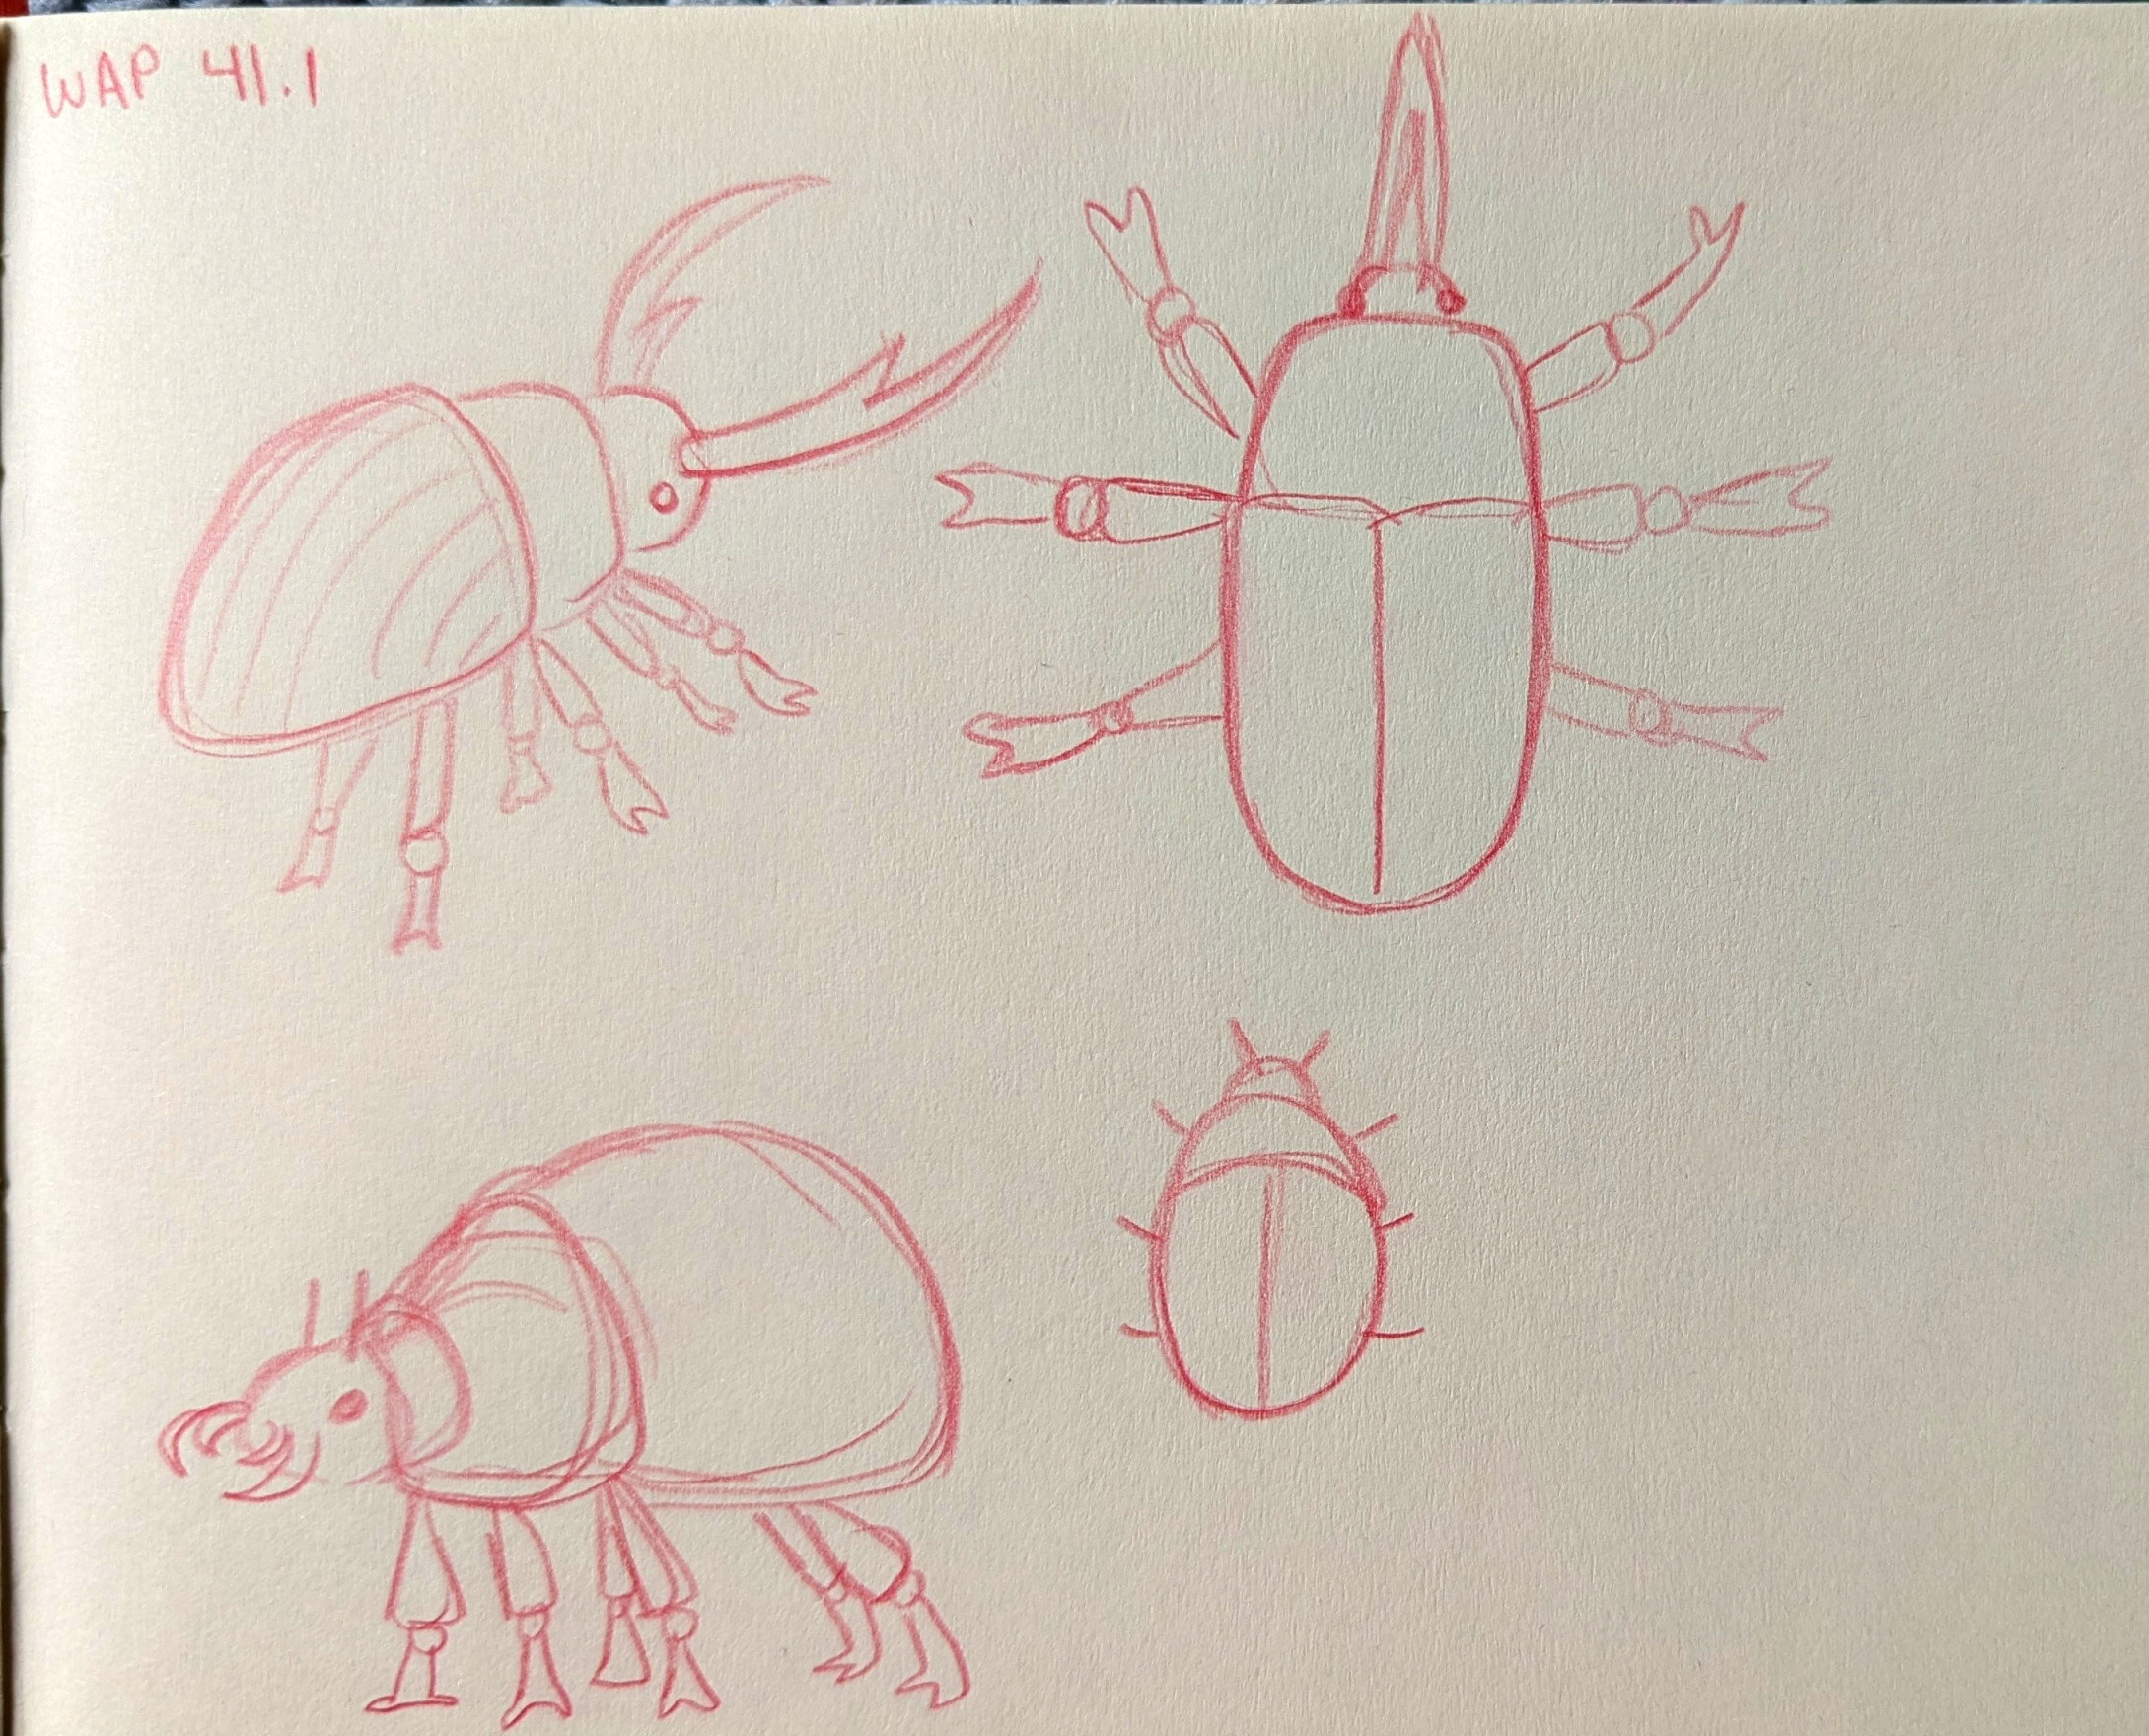 WAP 41.1